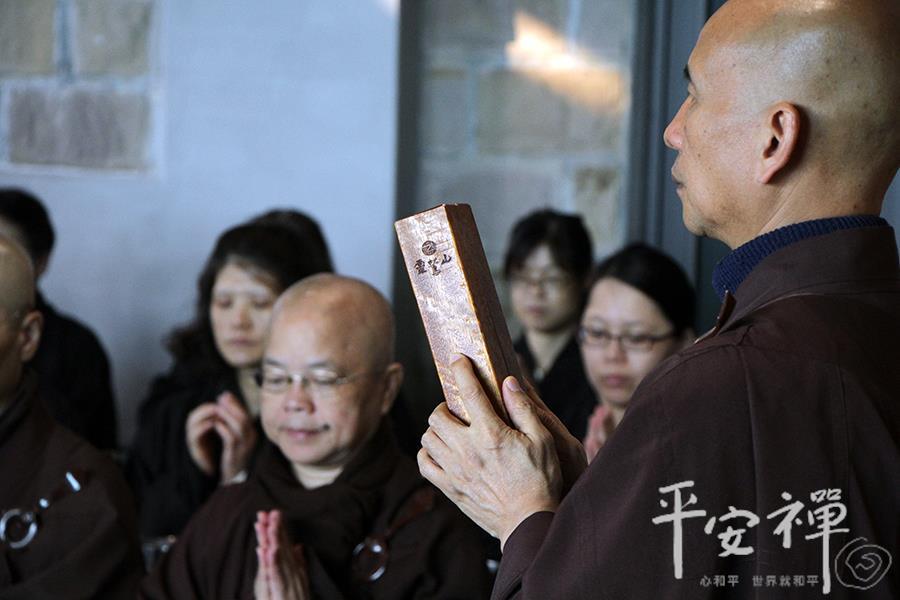 靈鷲山
平安禪
心和平 世界就和平